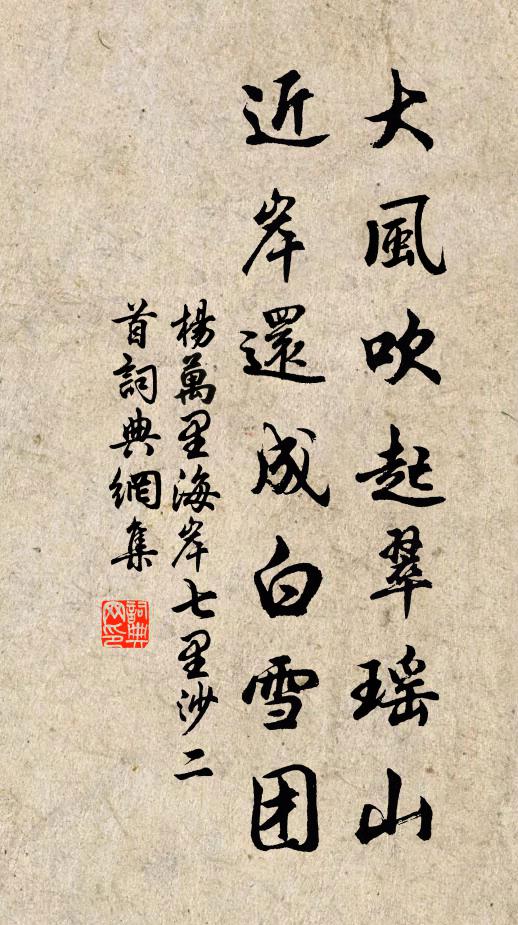 大風吹起翠瑶山
近岸還成白雪团
楊萬里海岸七里沙二
首詞典網集
詞典
网印